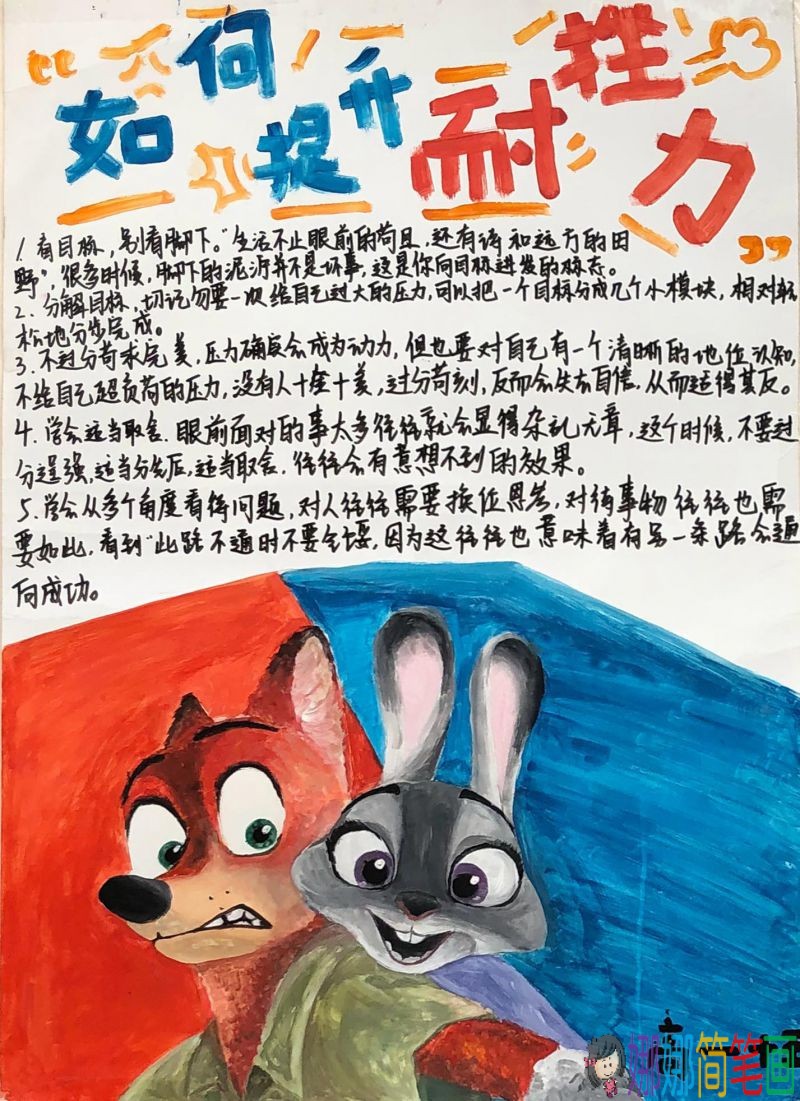 “如何提升耐挫力”
1. 看目标，别看脚下。“生活不止眼前的苟且，还有诗和远方的田
野”，很多时候，脚下的泥泞并不是坏事，这是你向目标进发的标志。
2. 分解目标，切记勿要一次给自己过大的压力，可以把一个目标分成几个小模块，相对轻
松地分步完成。
3. 不过分苛求完美，压力确实会成为动力，但也要对自己有一个清晰的地位认知，
不给自己超负荷的压力，没有人十全十美，过分苛刻，反而会失去自信，从而适得其反。
4. 学会适当取舍．眼前面对的事太多往往就会显得杂乱无章，这个时候，不要过
分逞强，适当分先后，适当取舍．往往会有意想不到的效果。
5. 学会从多个角度看待问题，对人往往需要换位思考，对待事物往往也需
要如此，看到“此路不通时不要气馁，因为这往往也意味着有另一条路会通
向成功。
娜娜简笔画